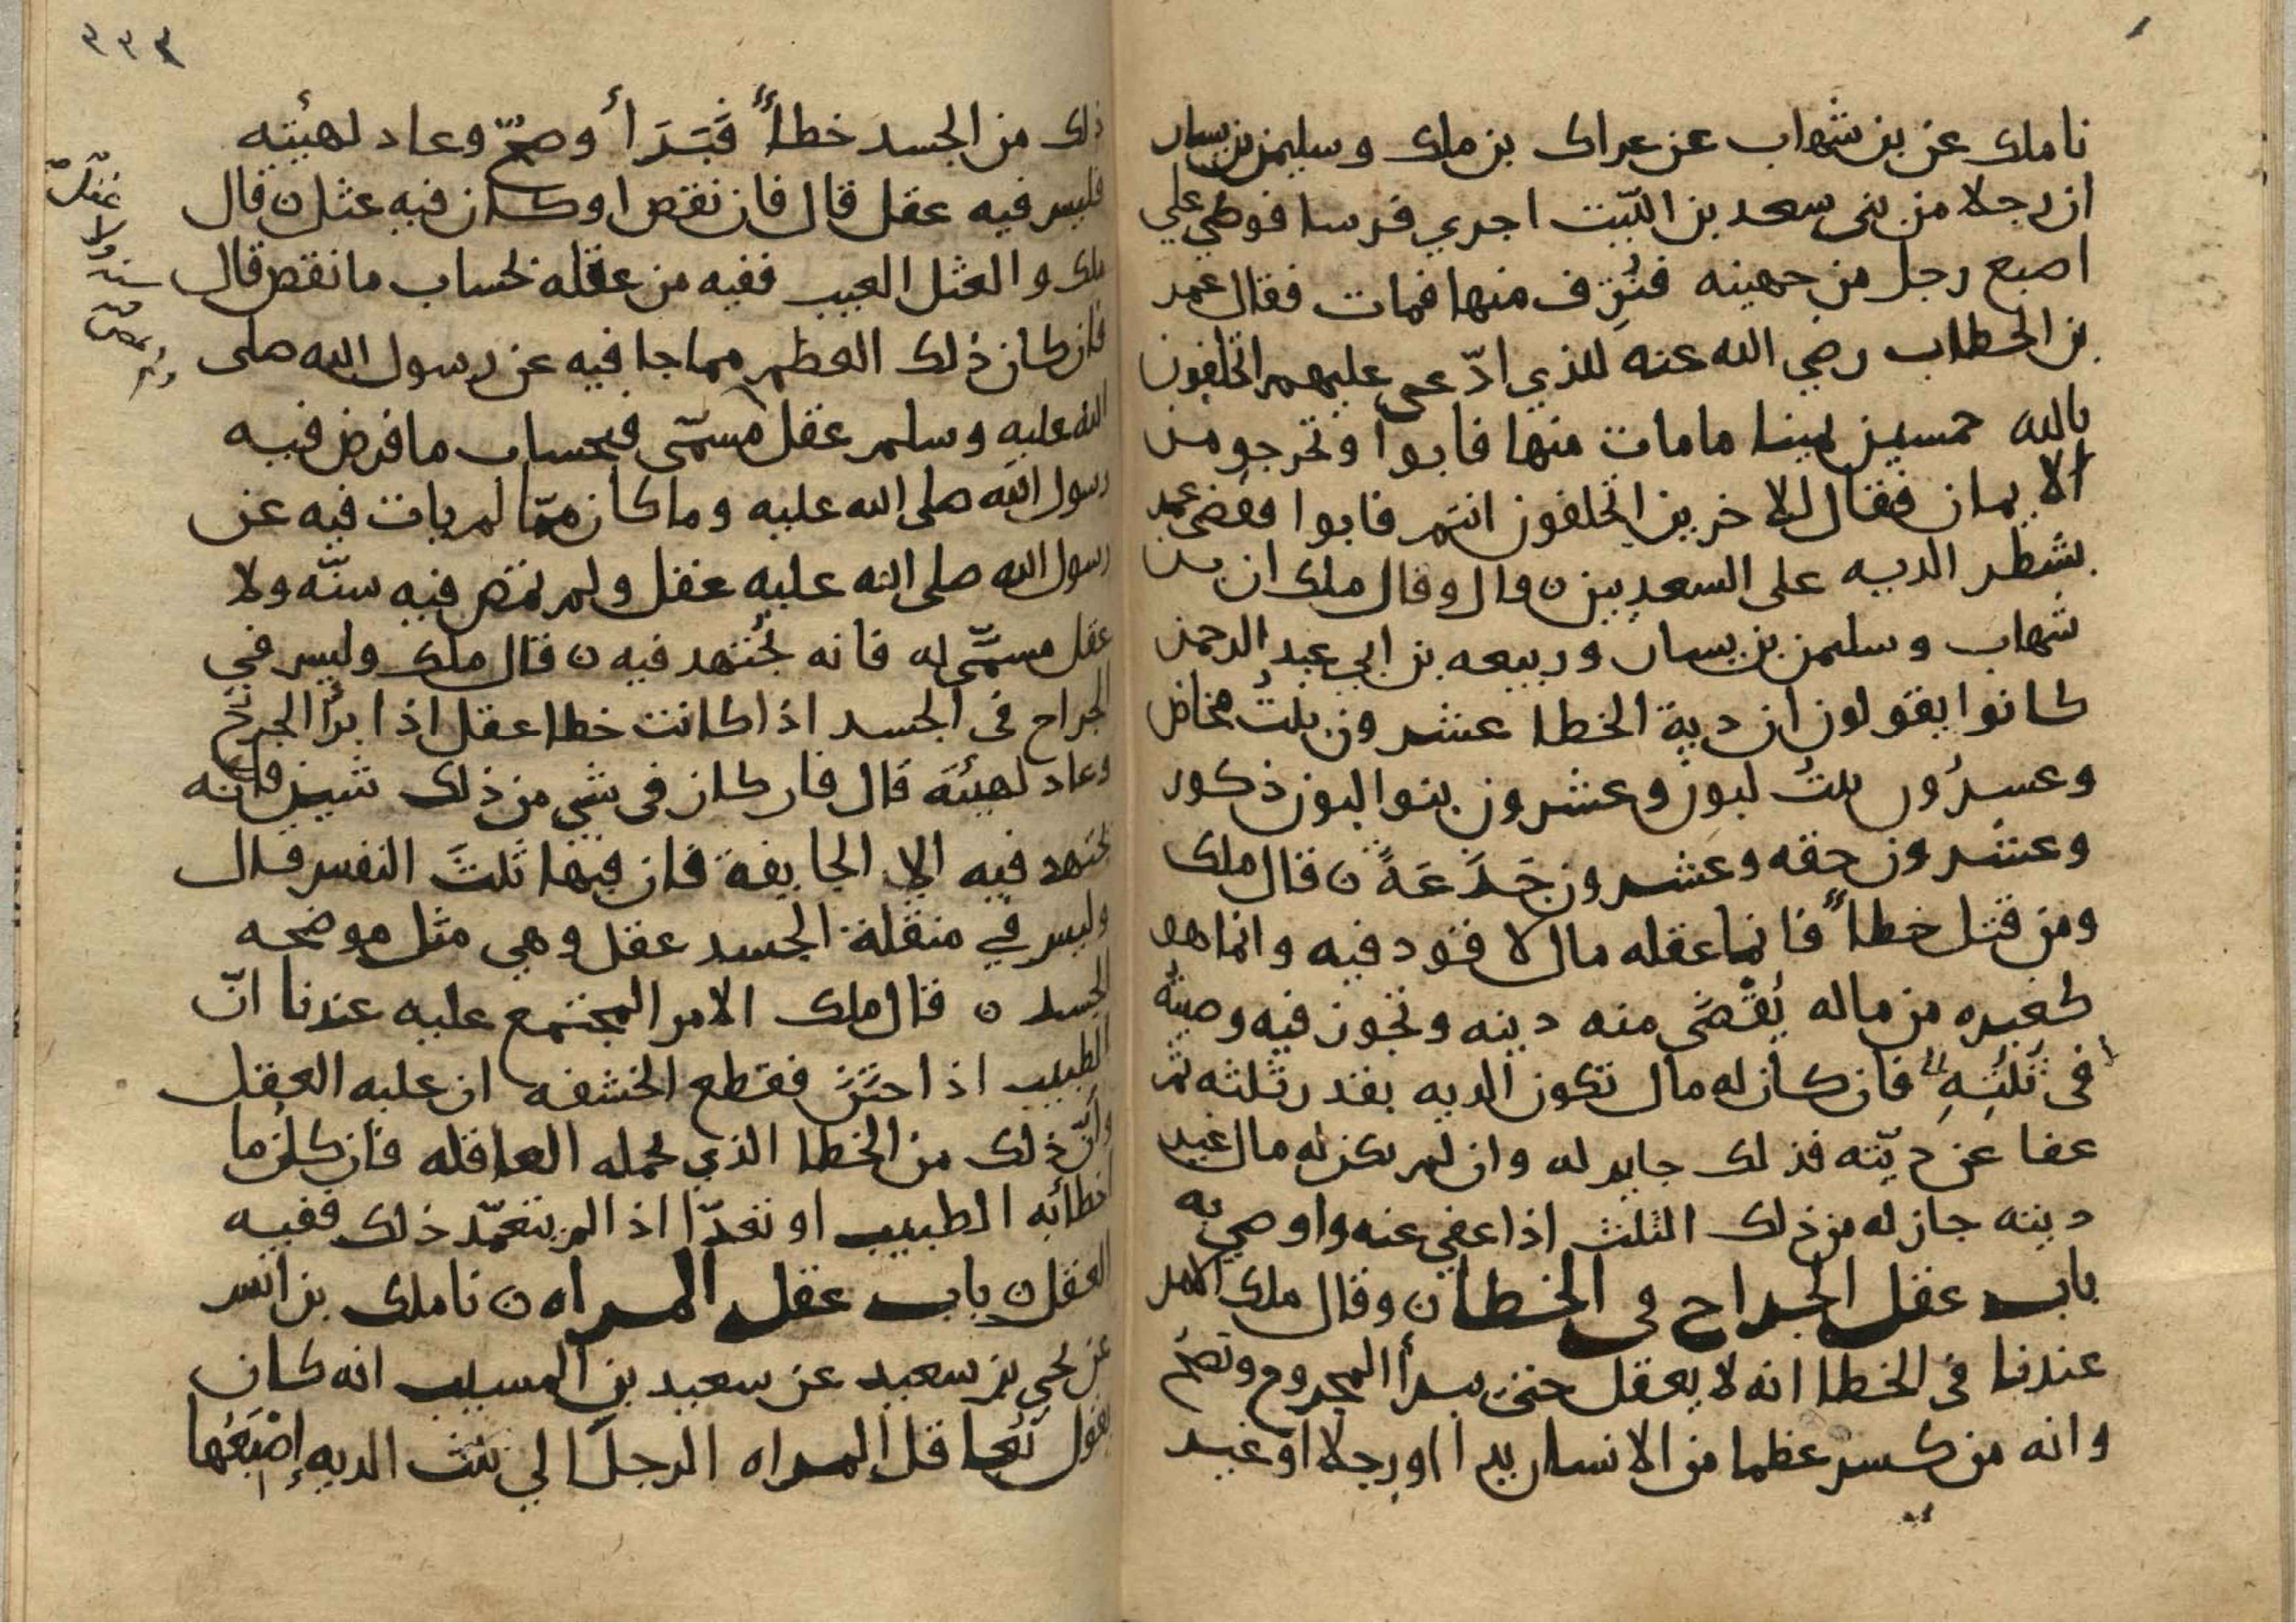 نا ملك عن بن شهاب عن عراك بن ملك وسليمن بن يسار
ان رجلا من بنى سعد بن الليث اجري فرسا فوطي علي
اصبع رجل من جهينه فنُزِف منها فمات فقال عمر
بن الخطاب رضي الله عنه للذي ادّعى عليهم اتحلفون
بالله خمسين يمينا ما مات منها فابوا وتحرجو من
الايمان فقال للاخرين اتحلفون انتم فابوا فقضى عمر
بشطر الديه على السعديين ن قال وقال ملك ان بن
شهاب وسليمن بن يسار وربيعه بن ابي عبد الرحمن
كانوا يقولون ان دية الخطا عشرون بنت مخاض
وعشرُون بنت لبون وعشرون بنوا لبون ذكور
وعشرون حقه وعشرون جَذَعَةً ن قال ملك
ومن قتل خطاً فانما عقله مال لا قود فيه وانما هو
كغيره من ماله يُقْضَى منه دينه وتجوز فيه وصيته
في ثلثِهِ فان كان له مال تكون الديه بقدر ثلثه ثم
عفا عن ديّته فذلك جايز له وان لم يكن له مال غير
ديته جاز له من ذلك الثلث اذا عفي عنه واوصي به
باب عقل الجراح في الخطا ن وقال ملك الامر
عندنا في الخطا انه لا يعقل حتى يبرأ المجروح وتصح
وانه من كسر عظما من الانسان يدا او رجلا او غير
٣٣٣
ذلك من الجسد خطاً فَبَرَأ وصحّ وعاد لهيئته
فليس فيه عقل قال فان نقص او كان فيه عثل ن قال
ملك والعثل العيب ففيه من عقله بحساب ما نقص قال
فان كان ذلك العظم مما جا فيه عن رسول الله صلى
الله عليه وسلم عقل مسمّى فبحساب ما فرض فيه
رسول الله صلى الله عليه وما كان ممّا لم يات فيه عن
رسول الله صلى الله عليه عقل ولم تمض فيه سنّه ولا
عقل مسمّى له فانه يُجتهد فيه ن قال ملك وليس في
الجراح في الجسد اذا كانت خطا عقل اذا برأ الجرح
وعاد لهيئته قال فان كان في شي من ذلك شين فانه
يجتهد فيه الا الجايفة فان فيها ثلثَ النفس قال
وليس في منقلة الجسد عقل وهي مثل موضحه
الجسد ن قال ملك الامر المجتمع عليه عندنا انّ
الطبيب اذا ختن فقطع الحشفه ان عليه العقل
وانّ ذلك من الخطا الذي تحمله العاقله فان كل ما
اخطا به الطبيب او تعدّا اذا لم يتعمّد ذلك ففيه
العقل ن باب عقل المراه ن نا ملك بن انس
عن يحي بن سعيد عن سعيد بن المسيب انه كان
يقول تُعاقل المراه الرجلَ الي ثلث الديه إصْبَعُها
عقل
ولا
سنه